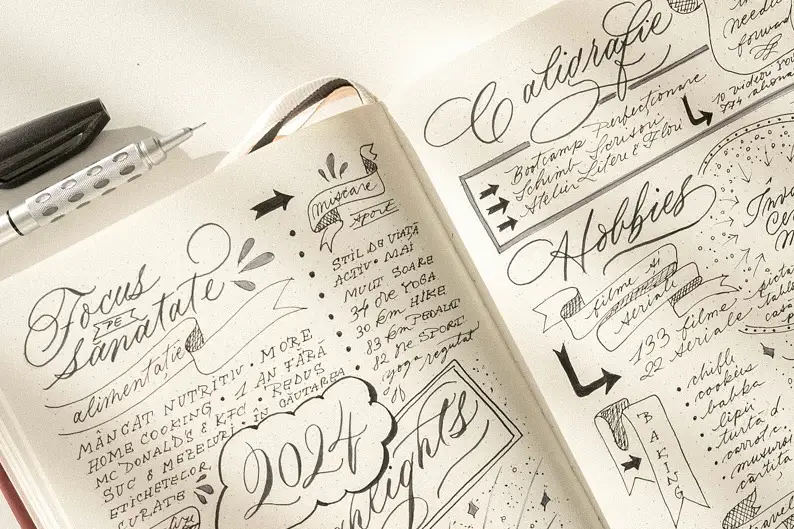 Focus
PE
sănătate
alimentație
MÂNCAT NUTRITIV · MORE
HOME COOKING · 1 AN FĂRĂ
MC DONALDS & KFC · REDUS
SUC & MEZELURI · ÎN CĂUTAREA
ETICHETELOR
CURATE
mișcare
sport
STIL DE VIAȚĂ
ACTIV · MAI
MULT SOARE
34 ore YOGA
30 km HIKE
83 km PEDALAT
82 ore SPORT
yoga regulat
2024
highlights
Caligrafie
Bootcamp Perfecționare
Schimb Scrisori
Atelier Litere & Flori
10 videori
774 abonați
needle
forward
Hobbies
filme și
seriale
133 filme
22 seriale
BAKING
· chifle
· cookies
· babka
· lipii
· turtă d